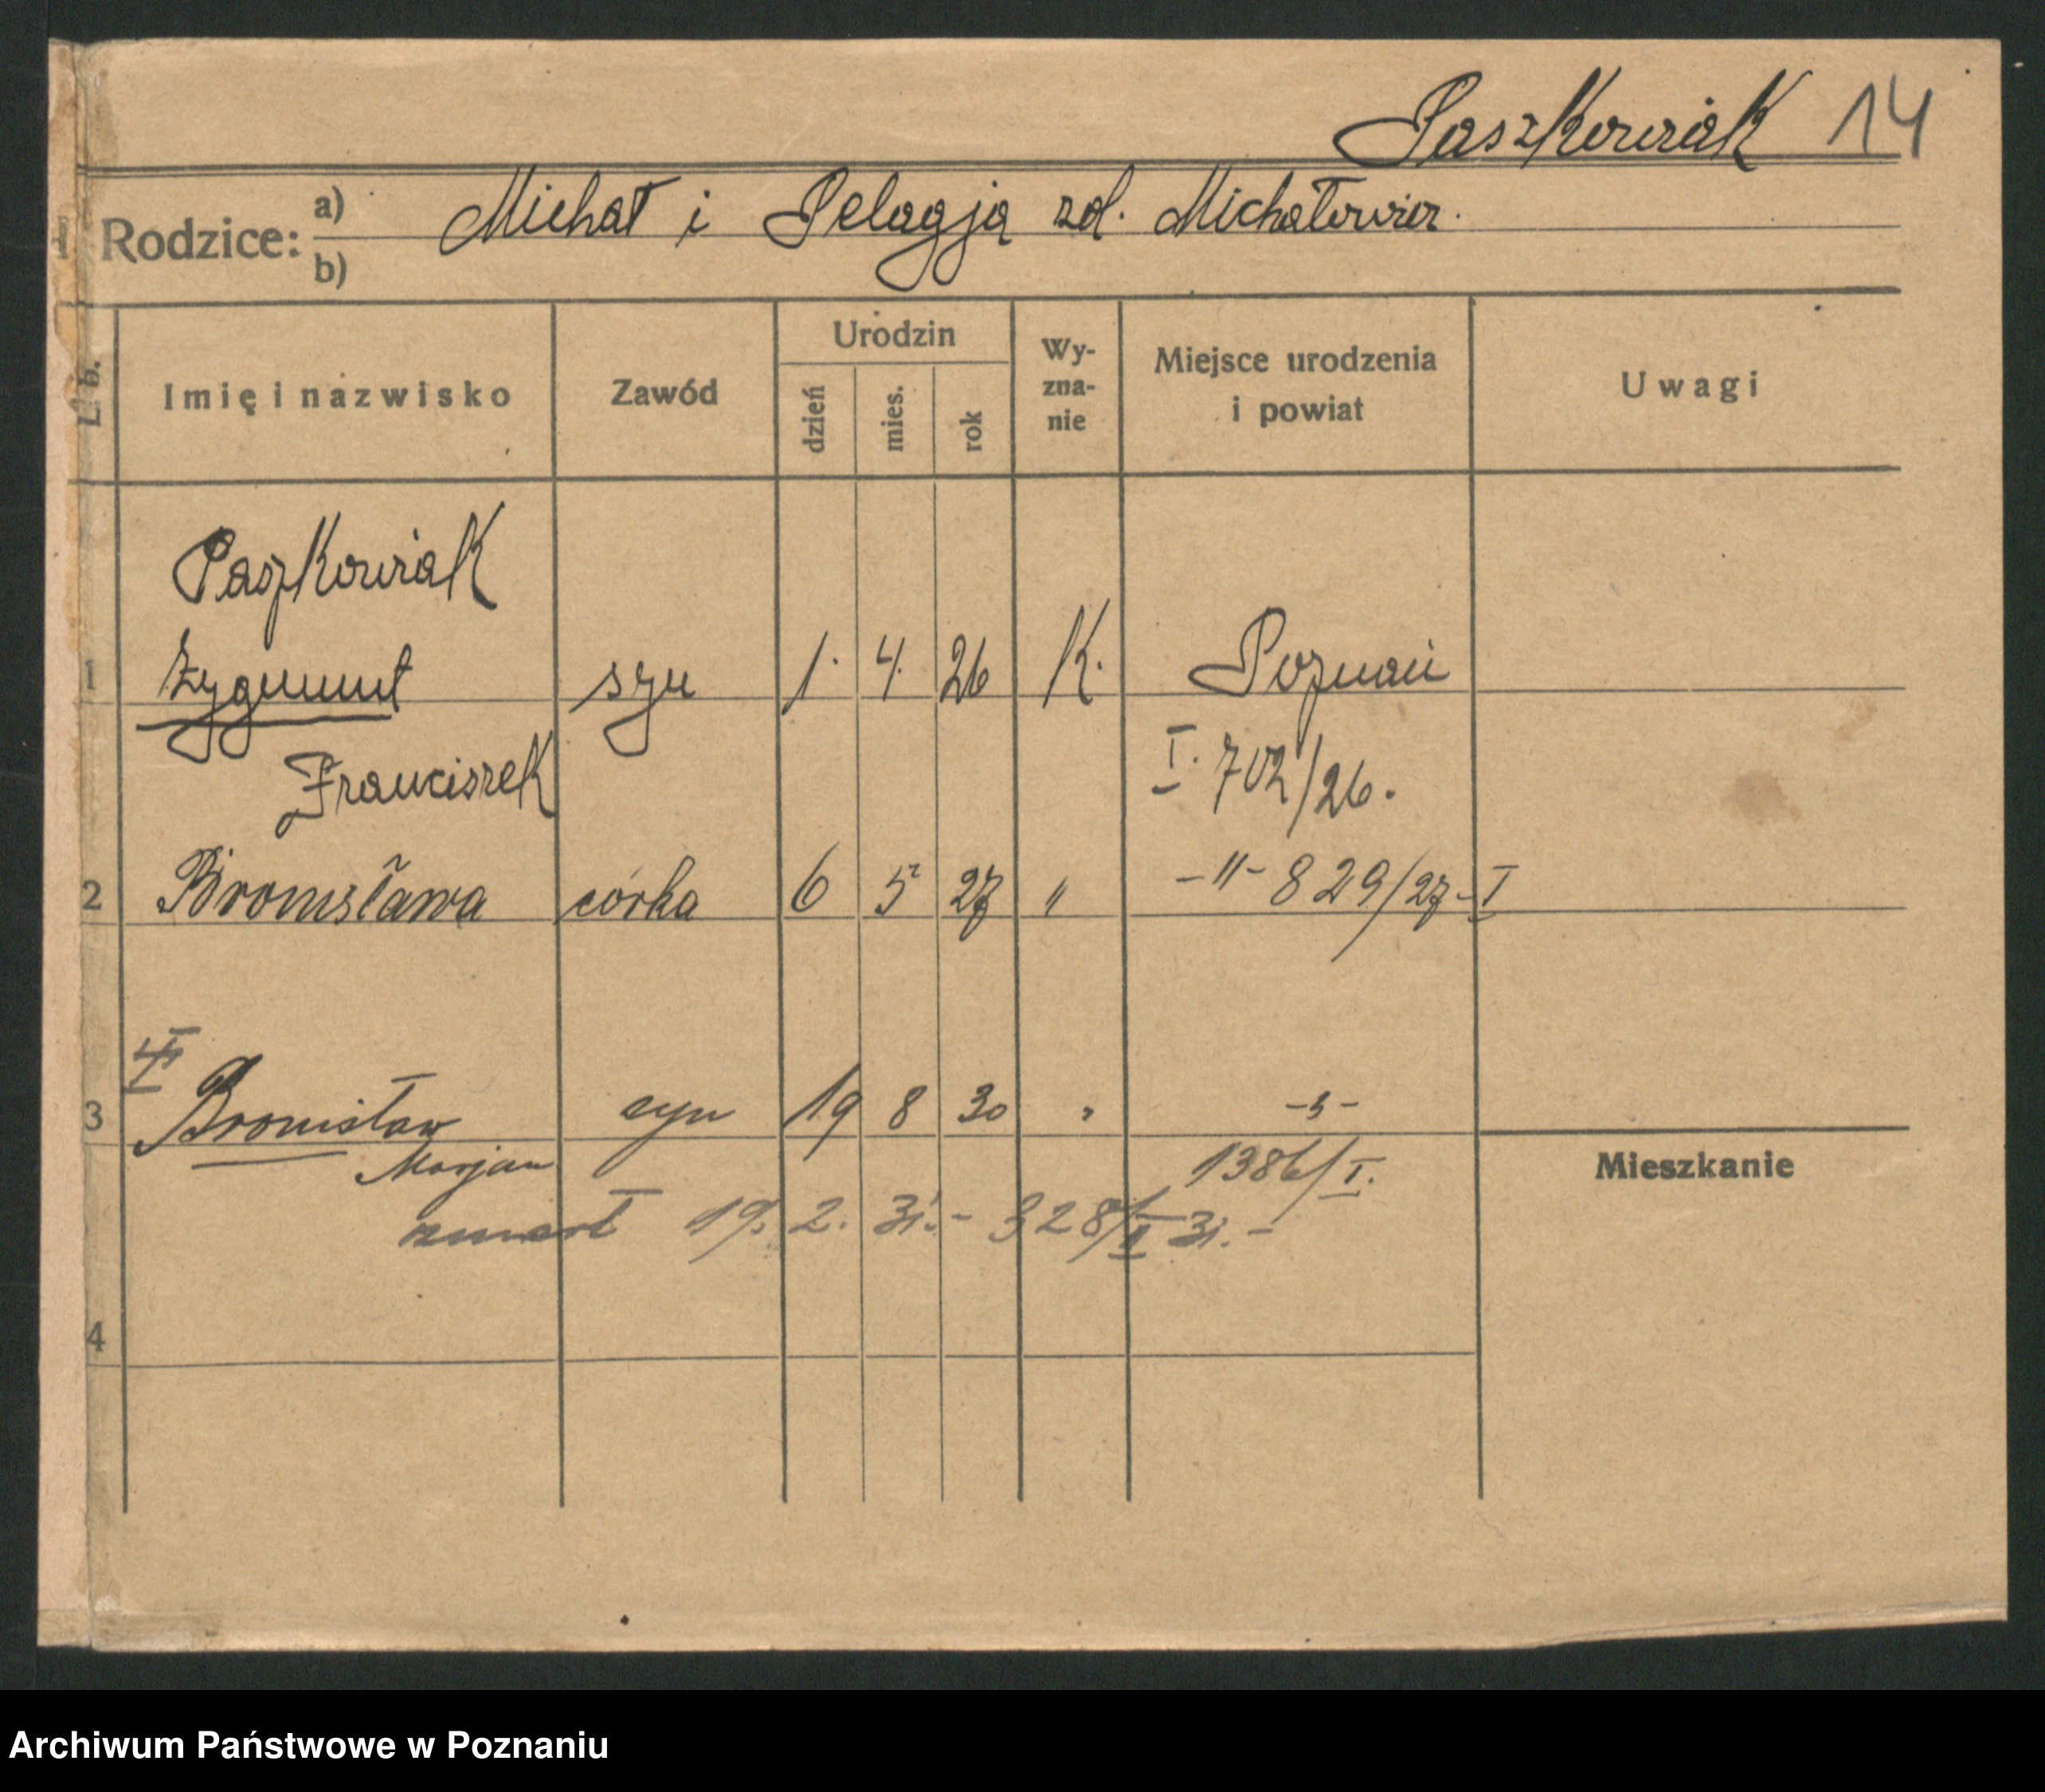 Paszkowiak 14
Rodzice: a) Michał i Pelagja zd. Michałowicz.
b)
L. b. Imię i nazwisko Zawód Urodzin dzień mies. rok Wyzna-nie Miejsce urodzenia i powiat Uwagi
Paszkowiak
1 Zygmunt syn 1. 4. 26 K. Poznań
Franciszek I. 702/26.
2 Bronisława córka 6 5 27 " -"- 829/27-I
3 Bronisław syn 19 8 30 " -"-
Marjan 1386/I.
Mieszkanie
zmarł 19. 2. 31.- 328/II 31.-
4
Archiwum Państwowe w Poznaniu